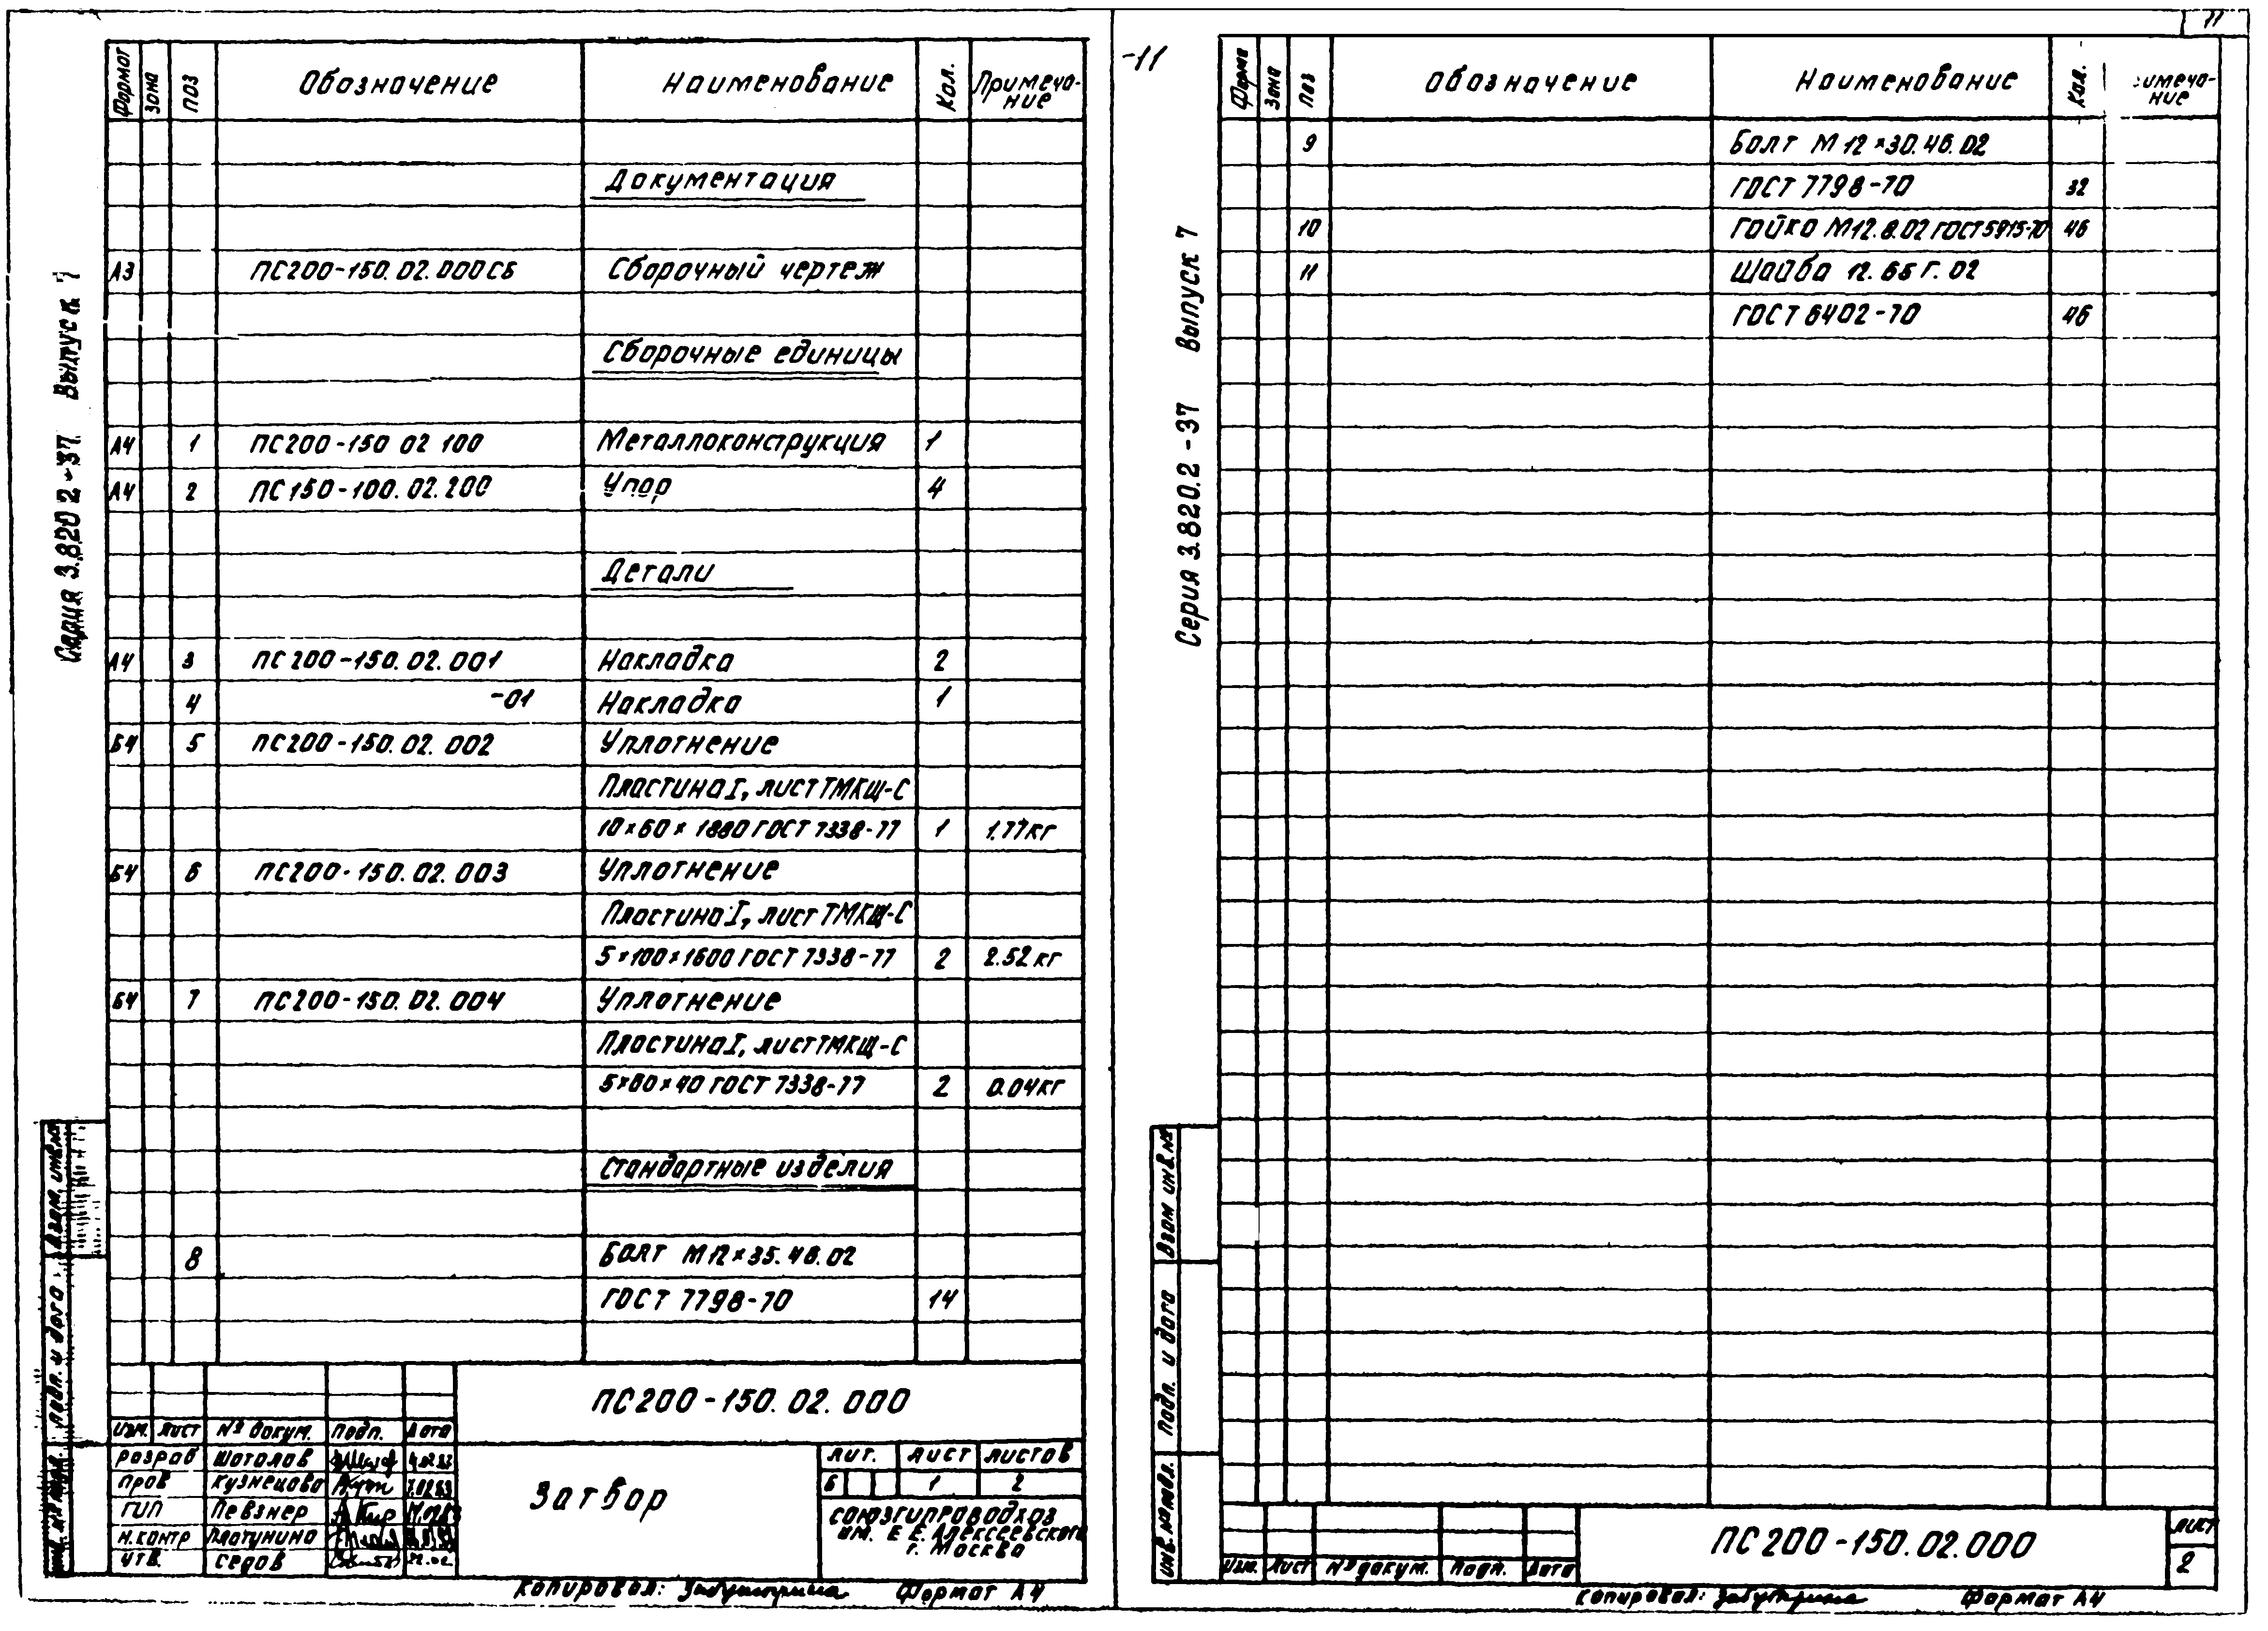 11
-11
Серия 3.820 2-37. Выпуск 7
Формат Зона Поз Обозначение Наименование Кол. Примеча-
ние
Документация
А3 ПС200-150.02.000СБ Сборочный чертеж
Сборочные единицы
А4 1 ПС200-150 02 100 Металлоконструкция 1
А4 2 ПС150-100.02.200 Упор 4
Детали
А4 3 ПС200-150.02.001 Накладка 2
4 -01 Накладка 1
БЧ 5 ПС200-150.02.002 Уплотнение
Пластина I, лист ТМКЩ-С
10×60×1880 ГОСТ 7338-77 1 1.77кг
БЧ 6 ПС200-150.02.003 Уплотнение
Пластина I, лист ТМКЩ-С
5×100×1600 ГОСТ 7338-77 2 2.52кг
БЧ 7 ПС200-150.02.004 Уплотнение
Пластина I, лист ТМКЩ-С
5×60×40 ГОСТ 7338-77 2 0.04кг
Стандартные изделия
8 Болт М12×35.46.02
ГОСТ 7798-70 14
ПС200-150.02.000
Изм. Лист № докум. Подп. Дата
Разраб Шаталов
Пров Кузнецова
ГИП Певзнер
Н.контр Платунина
Утв. Седов
Затвор
Лит. Лист Листов
Б 1 2
Союзгипроводхоз
им. Е.Е. Алексеевского
г. Москва
Подп. и дата
Копировал: Формат А4
Серия 3.820.2-37 Выпуск 7
Форма Зона Поз Обозначение Наименование Кол. имеча-
ние
9 Болт М12×30.46.02
ГОСТ 7798-70 32
10 Гайка М12.8.02 ГОСТ 5915-70 46
11 Шайба 12.65Г.02
ГОСТ 6402-70 46
Взам инв.№
Подп. и дата
Инв. № подл.
Изм. Лист № докум. Подп. Дата
ПС200-150.02.000
Лист
2
Копировал: Формат А4